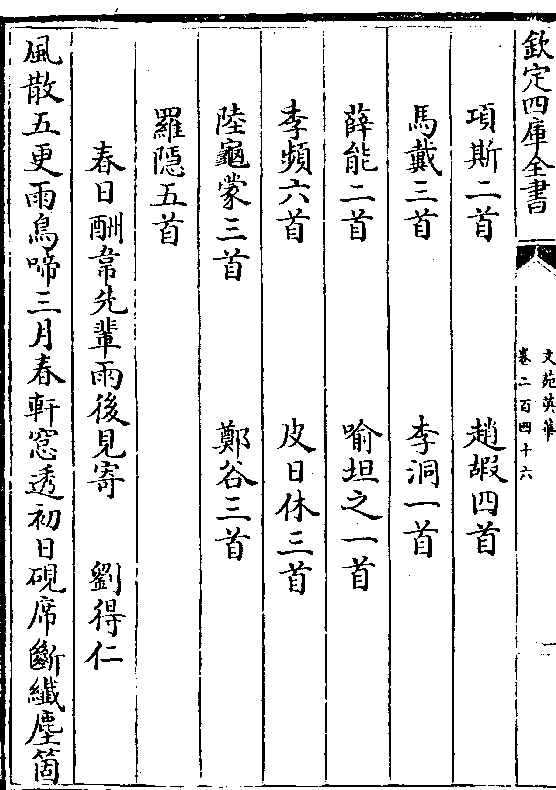 欽定四庫全書
文苑英華
卷二百四十六
一
項斯二首 趙嘏四首
馬戴三首 李洞一首
薛能二首 喻坦之一首
李頻六首 皮日休三首
陸龜蒙三首 鄭谷三首
羅隱五首
春日酬韋先輩雨後見寄 劉得仁
風散五更雨鳥啼三月春軒窓透初日硯席斷纎塵箇